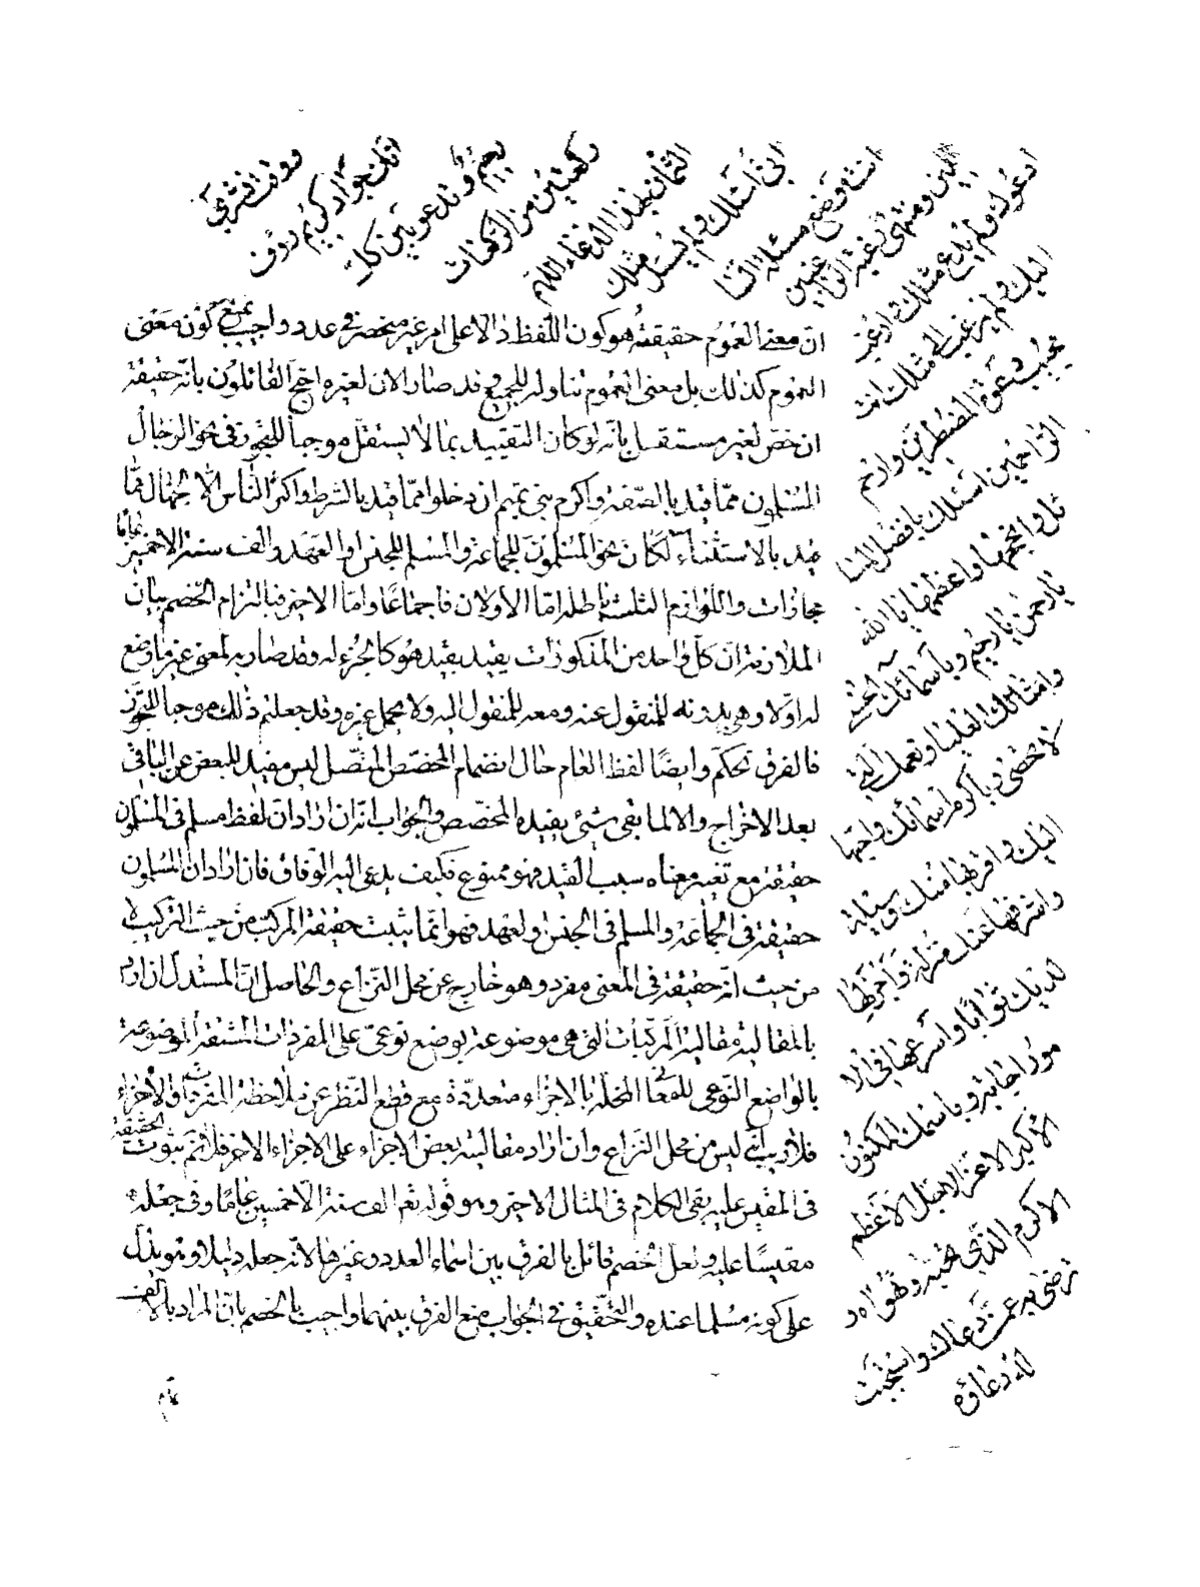 ان معنى العموم حقيقة هو كون اللفظ دالا على امر غير منحصر في عدد واجيب بمنع كون معنى
العموم كذلك بل معنى العموم تناوله للجميع وقد صار الان لغيره احتج القائلون بانه حقيقة
ان خص لغير مستقل بانه لو كان التقييد بما لا يستقل موجبا للتجوز في نحو الرجال
المسلمون مما قيد بالصفة واكرم بني تميم ان دخلوا مما قيد بالشرط واكثر الناس الا الجهال مما
قيد بالاستثناء لكان نحو المسلمون للجماعة والمسلم للجنس او العهد والف سنة الا خمسين عاما
مجازات واللوازم الثلث باطلة اما الاولان فاجماعا واما الاخير فبالتزام الخصم بيان
الملازمة ان كل واحد من المذكورات يقيد بقيد هو كالجزء له وقد صار به لمعنى غير ما وضع
له اولا وهي بدونه للمنقول عنه ومعه للمنقول اليه ولا يحمل غيره وقد جعلتم ذلك موجبا للتجوز
فالفرق تحكم وايضا لفظ العام حال انضمام المخصص المتصل ليس مفيد للبعض عن الباقي
بعد الاخراج والا لما بقي شيئ يفيده المخصص والجواب انه ان اراد ان لفظ مسلم في المسلمون
حقيقة مع تغير معناه بسبب القيد فهو ممنوع فكيف يدعى اليه الوفاق فان اراد ان المسلمون
حقيقة في الجماعة والمسلم في الجنس ولعهد فهو انما يثبت حقيقة المركب من حيث التركيب لا
من حيث انه حقيقة في المعنى مفرد وهو خارج عن محل النزاع والحاصل ان المستدل ان اراد
بالمقالية مقالية المركبات التي هي موضوعة بوضع نوعي على المفردات المشتقة الموضوعة
بالواضع النوعي للمعاني المحلة بالاجزاء متعددة مع قطع النظر عن ملاحظة المفردات والاجزاء
فلا ريب انه ليس من محل النزاع وان اراد مقالية بعض الاجزاء على الاجزاء الاخر فلا نم ثبوت الحقيقة
في المقيس عليه بقي الكلام في المثال الاخير وهو قوله نعم الف سنة الا خمسين عاما وفي جعله
مقيسا عليه ولعل الخصم قائل بالفرق بين اسماء العدد وغيرها لانه جعله دليلا وهو يدل
على كونه مسلما عنده والتحقيق في الجواب منع الفرق بينهما واجيب بالخصم بان المراد بالالف
ووفت افشرى
انك جواد كريم رؤف
رحيم وتدعو بين كل
ركعتين من الركعات
الثمان بهذا الدعاء اللهم
اني اسئلك ولم يسئل مثلك
انت موضع مسئلة السا
ئلين ومنتهى رغبة الراغبين
ادعوك ولم يدع مثلك وارغب
اليك ولم يرغب الى مثلك انت
مجيب دعوة المضطرين وارحم
الراحمين اسئلك بافضل المسا
ئل وانجحها واعظمها يا الله
يا رحمن يا رحيم وباسمائك الحسنى
وامثالك العليا ونعمك التي
لا تحصى وباكرم اسمائك واحبها
اليك واقربها منك وسيلة
واشرفها عندك منزلة واجزلها
لديك ثوابا واسرعها في الا
مور اجابة وباسمك المكنون
الاكبر الاعز الاجل الاعظم
الاكرم الذي تحبه وتهواه و
ترضى به عمن دعاك واستجبت
له دعائه